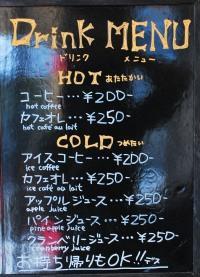 Drink MENU
ドリンク メニュー
HOT あたたかい
コーヒー…¥200-
hot coffee
カフェオレ…¥250-
hot café au lait
COLD つめたい
アイスコーヒー…¥200-
ice coffee
カフェオレ…¥250-
ice café au lait
アップルジュース…¥250-
apple juice
パインジュース…¥250-
pineapple juice
クランベリージュース…¥250-
cranberry juice
お持ち帰りもOK!!デス